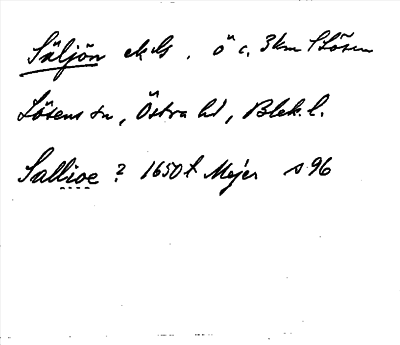 Säljön ek. bl. ö c. 3km S Lösen
Lösens sn, Östra hd, Blek. l.
Sallioe ? 1650 t Mejer s 96